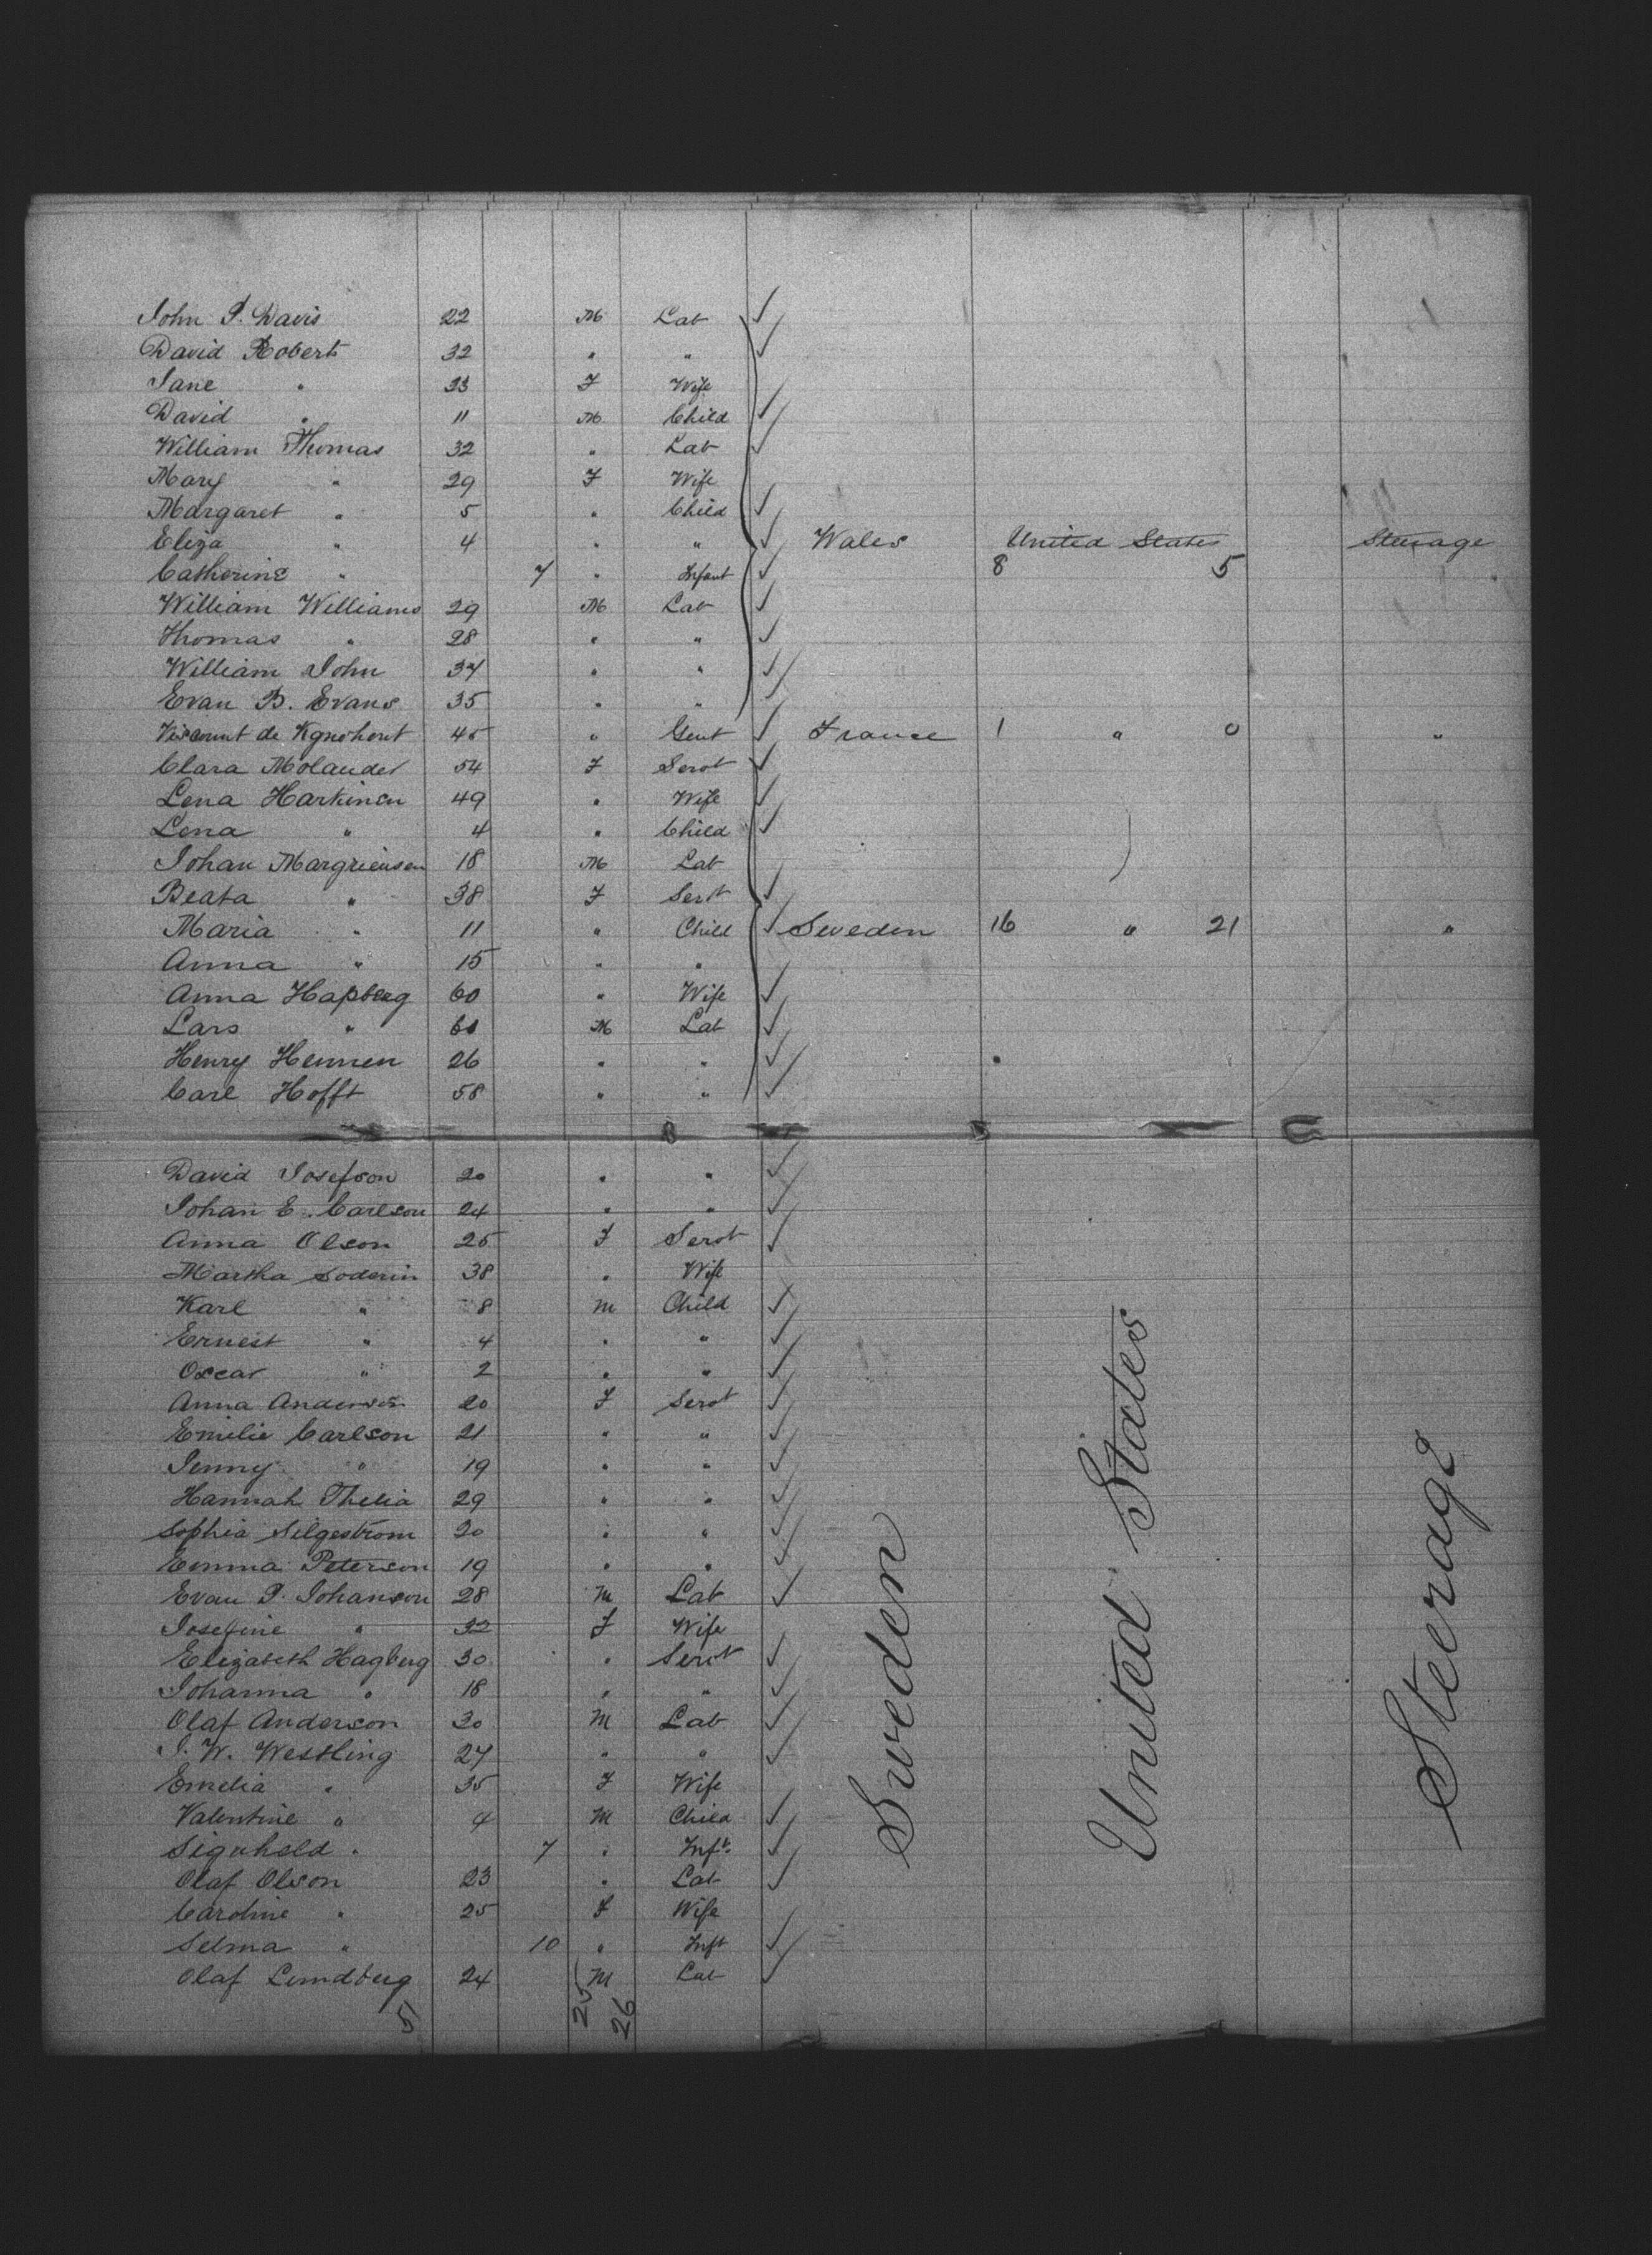 John P. Davis 22 M Lab
David Roberts 32 " "
Jane " 33 F Wife
David " 11 M Child
William Thomas 32 " Lab
Mary " 29 F Wife
Margaret " 5 " Child
Eliza " 4 " " Wales United States Steerage
Catherine " 7 " Infant 8 5
William Williams 29 M Lab
Thomas " 28 " "
William John 34 " "
Evan B. Evans 35 " "
Viscount de 45 " Gent France 1 " 0 "
Clara Molander 54 F Servt
Lena Harkinen 49 " Wife
Lena " 4 " Child
Johan 18 M Lab
Beata " 38 F Servt
Maria " 11 " Child Sweden 16 " 21 "
Anna " 15 " "
Anna 60 " Wife
Lars " 60 M Lab
Henry Hennen 26 " "
Carl Hofft 58 " "
David Josefson 20 " "
Johan E. Carlson 24 " "
Anna Olson 25 F Servt
Martha Soderin 38 " Wife
Karl " 8 M Child
Ernest " 4 " "
Oscar " 2 " "
Anna Anderson 20 F Servt
Emilie Carlson 21 " "
Jenny " 19 " "
Hannah Thelia 29 " "
Sophia Silgestrom 20 " "
Emma Peterson 19 " "
Evan P. Johanson 28 M Lab
Josefine " 32 F Wife
Elizabeth Hagberg 30 " Servt
Johanna " 18 " "
Olaf Anderson 30 M Lab
J. W. Westling 27 " "
Emelia " 35 F Wife
Valentine " 4 M Child
Signhold " 7 " Inft.
Olaf Olson 23 " Lab
Caroline " 25 F Wife
Selma " 10 " Inft
Olaf Lundberg 24 M Lab
Sweden
United States
Steerage
51
25
26